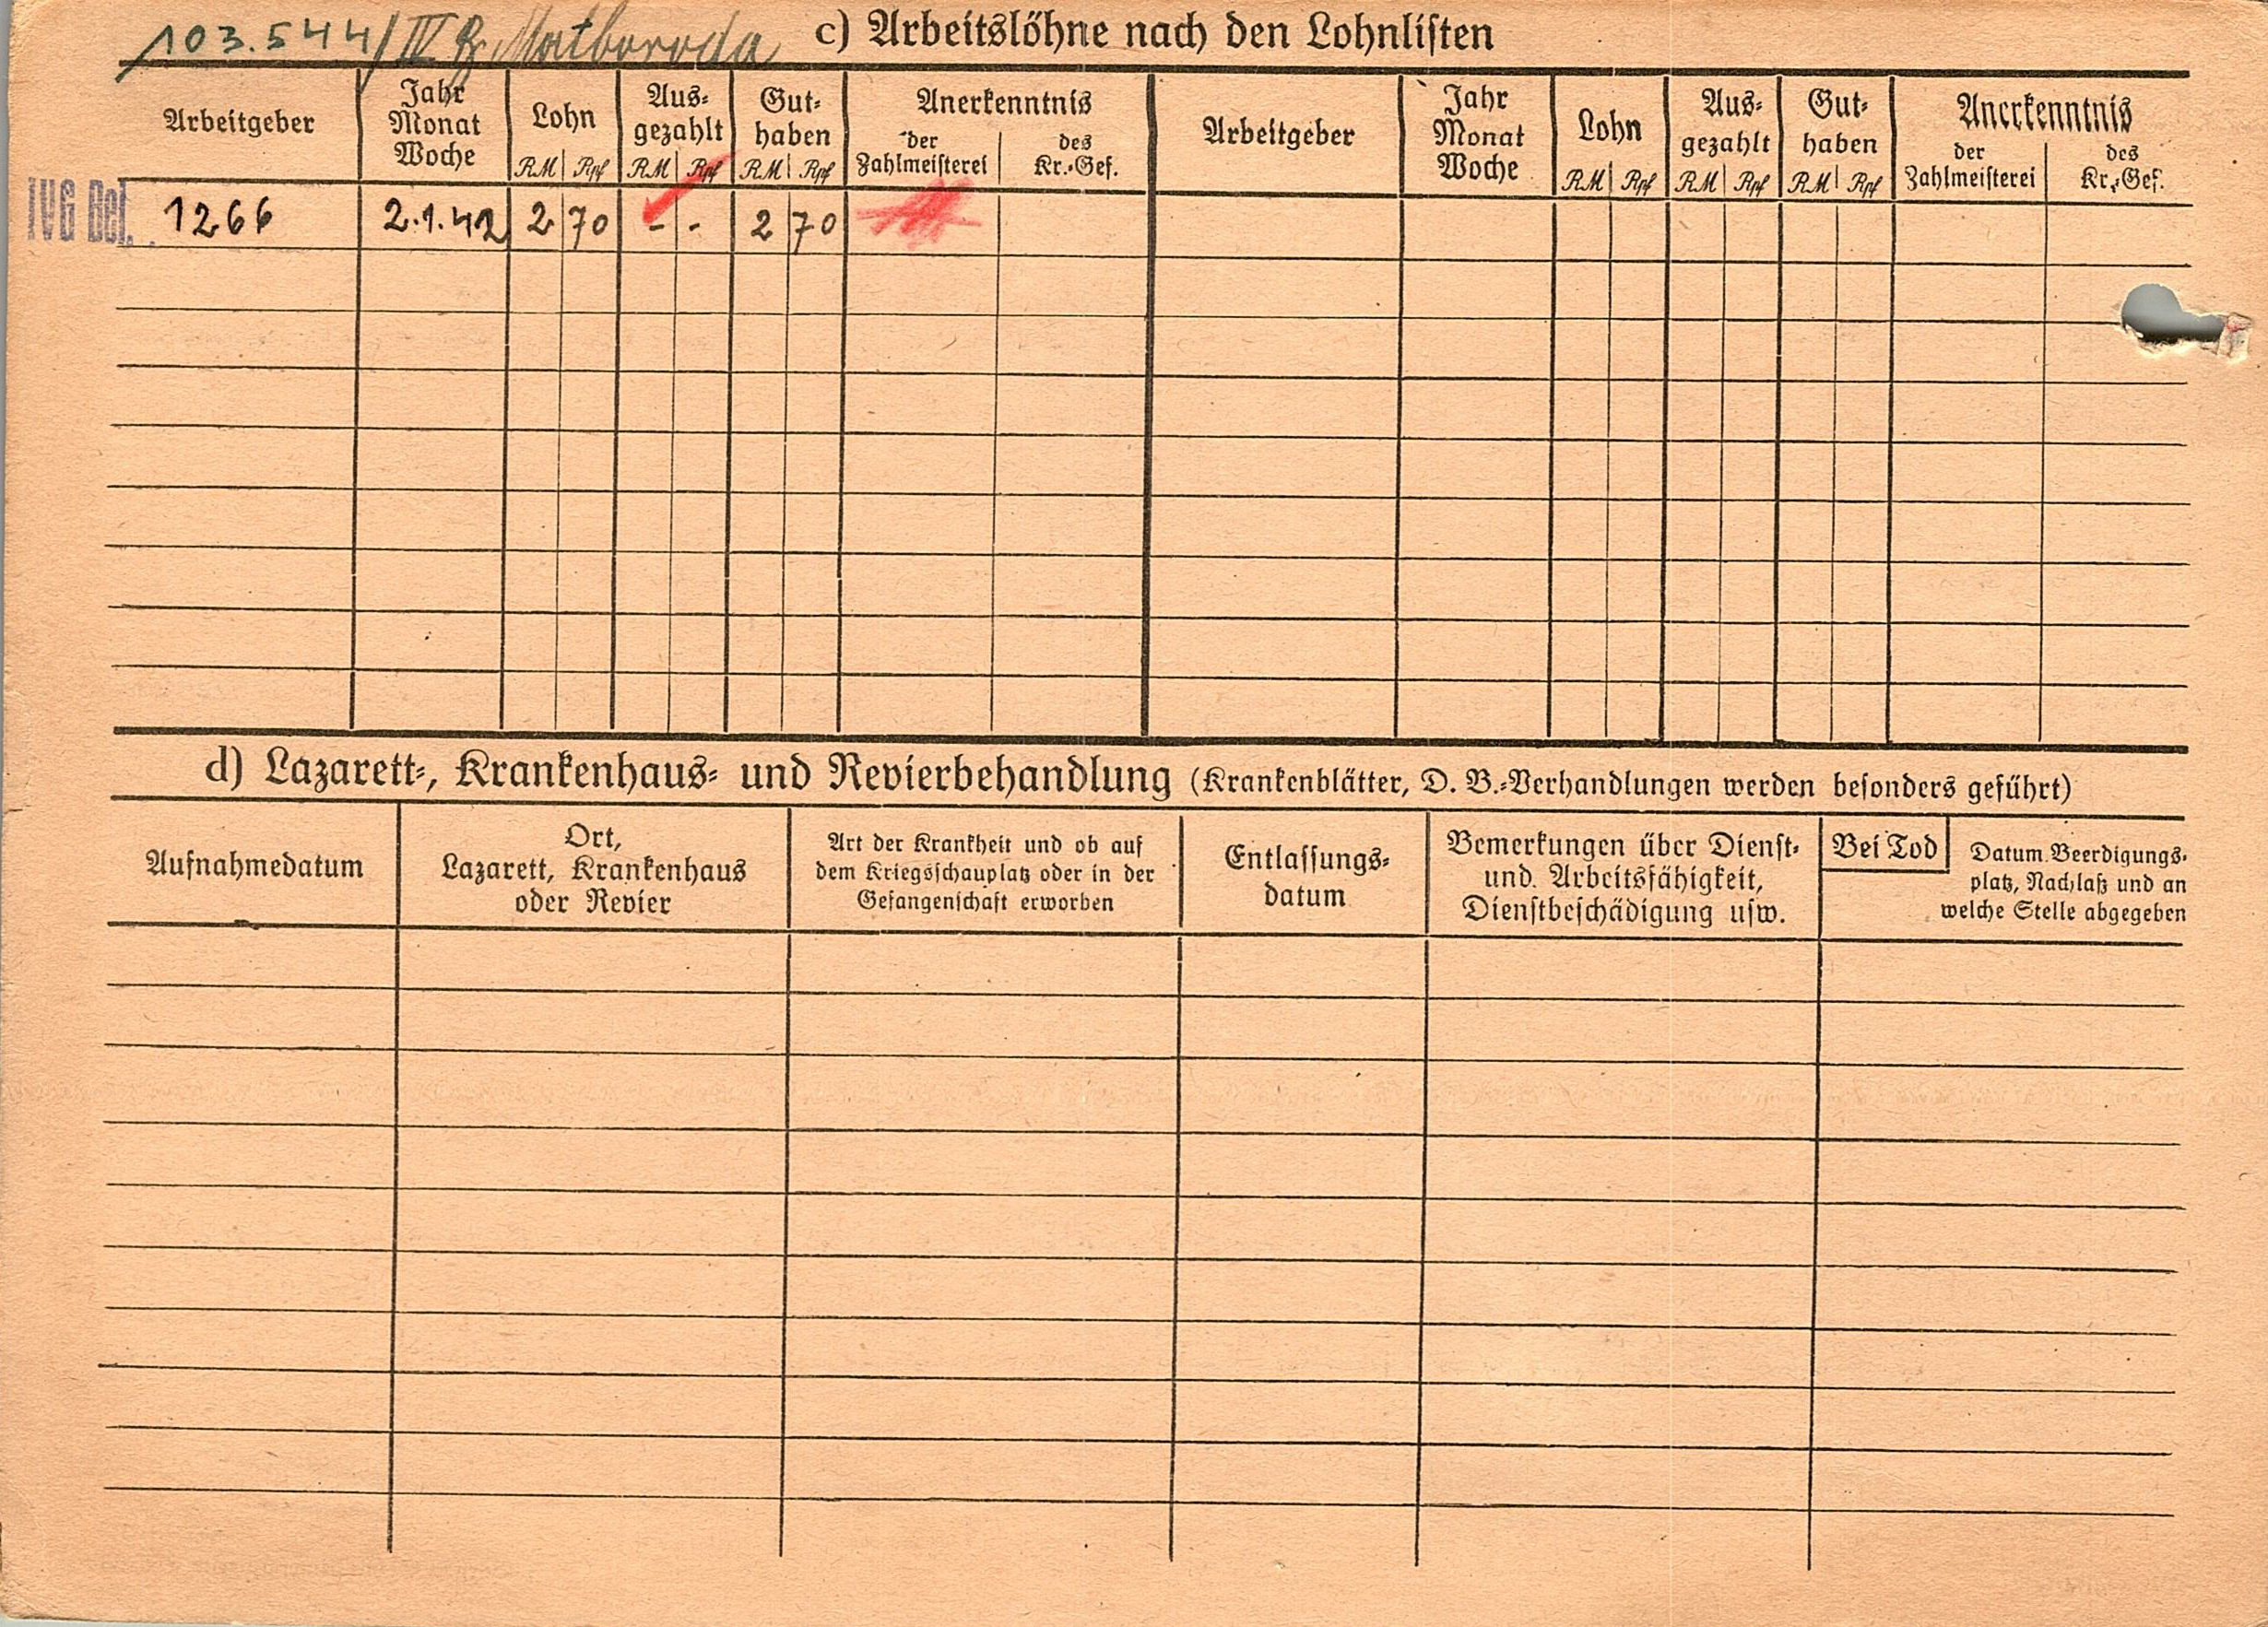 103.544/IV B Matboroda c) Arbeitslöhne nach den Lohnlisten
Arbeitgeber
Jahr
Monat
Woche
Lohn
RM Rpf
Aus-
gezahlt
RM Rpf
Gut-
haben
RM Rpf
Anerkenntnis
der
Zahlmeisterei
des
Kr.-Gef.
Arbeitgeber
Jahr
Monat
Woche
Lohn
RM Rpf
Aus-
gezahlt
RM Rpf
Gut-
haben
RM Rpf
Anerkenntnis
der
Zahlmeisterei
des
Kr.-Gef.
IVG Bel. 1266 2.1.42 2 70 - - 2 70
d) Lazarett-, Krankenhaus- und Revierbehandlung (Krankenblätter, D. B.-Verhandlungen werden besonders geführt)
Aufnahmedatum
Ort,
Lazarett, Krankenhaus
oder Revier
Art der Krankheit und ob auf
dem Kriegsschauplatz oder in der
Gefangenschaft erworben
Entlassungs-
datum
Bemerkungen über Dienst-
und Arbeitsfähigkeit,
Dienstbeschädigung usw.
Bei Tod
Datum Beerdigungs-
platz, Nachlaß und an
welche Stelle abgegeben